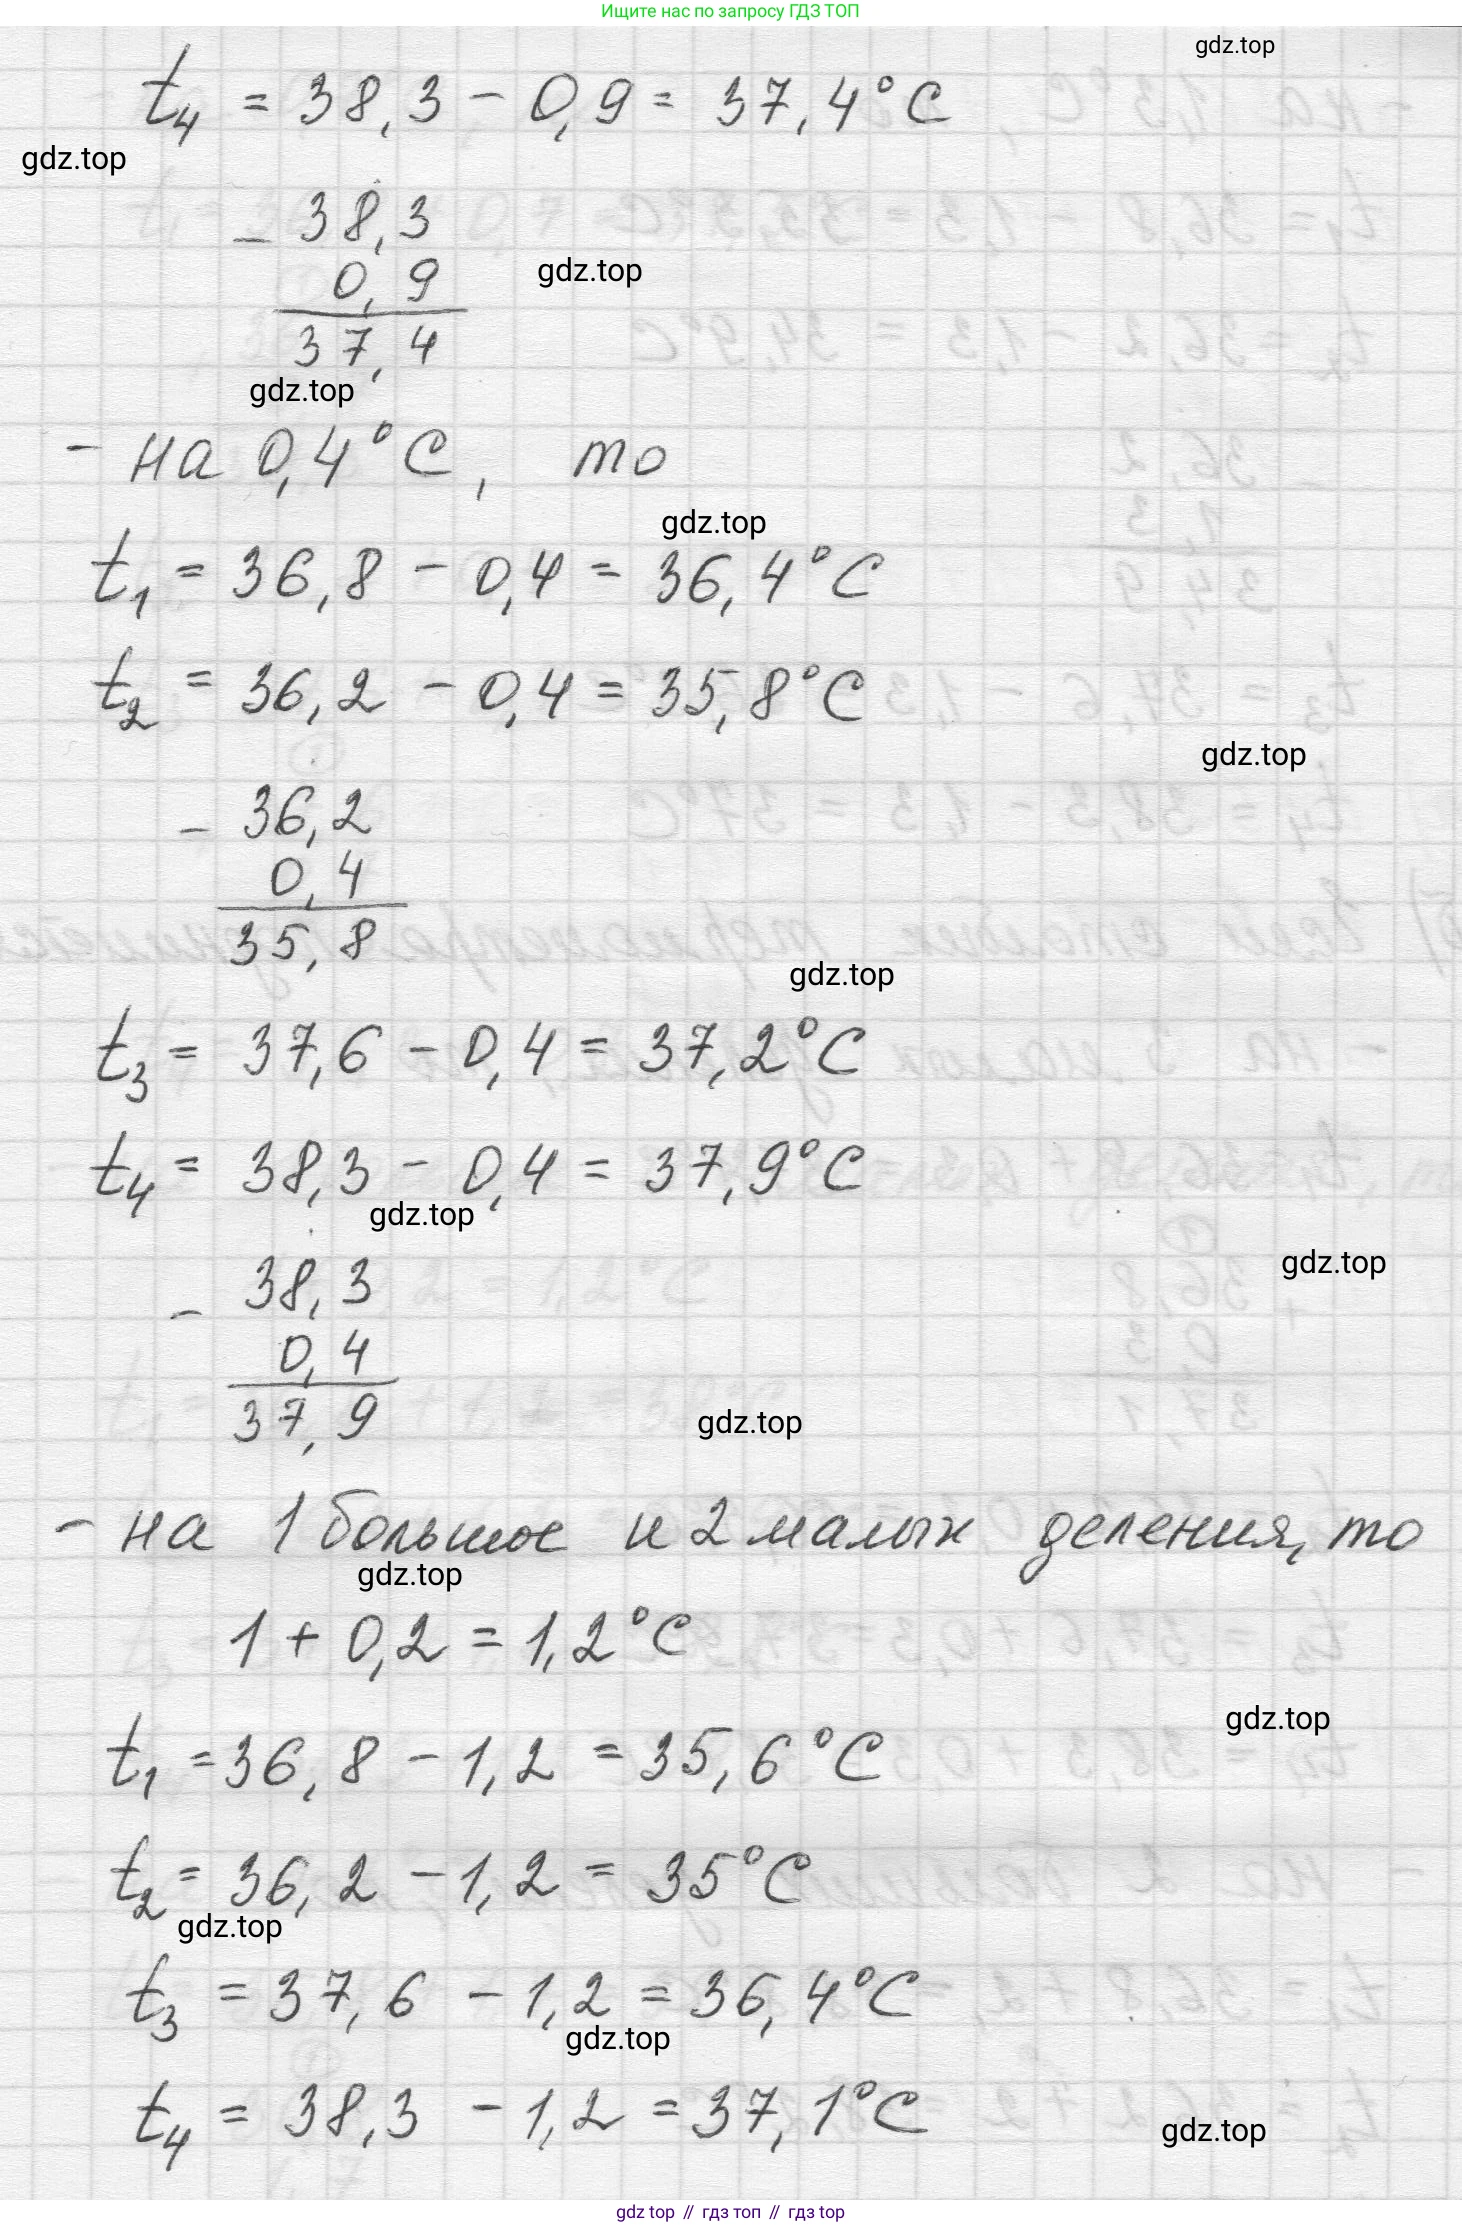 Ищите нас по запросу ГДЗ ТОП
gdz.top
t₄ = 38,3 - 0,9 = 37,4°C
gdz.top
- 38,3
0,9
gdz.top
37,4
gdz.top
- на 0,4°C, то
gdz.top
t₁ = 36,8 - 0,4 = 36,4°C
t₂ = 36,2 - 0,4 = 35,8°C
gdz.top
- 36,2
0,4
35,8
gdz.top
t₃ = 37,6 - 0,4 = 37,2°C
t₄ = 38,3 - 0,4 = 37,9°C
gdz.top
gdz.top
- 38,3
0,4
37,9
gdz.top
- на 1 большое и 2 малых деления, то
gdz.top
1 + 0,2 = 1,2°C
gdz.top
t₁ = 36,8 - 1,2 = 35,6°C
t₂ = 36,2 - 1,2 = 35°C
gdz.top
t₃ = 37,6 - 1,2 = 36,4°C
gdz.top
t₄ = 38,3 - 1,2 = 37,1°C
gdz.top
gdz top // гдз топ // gdz top